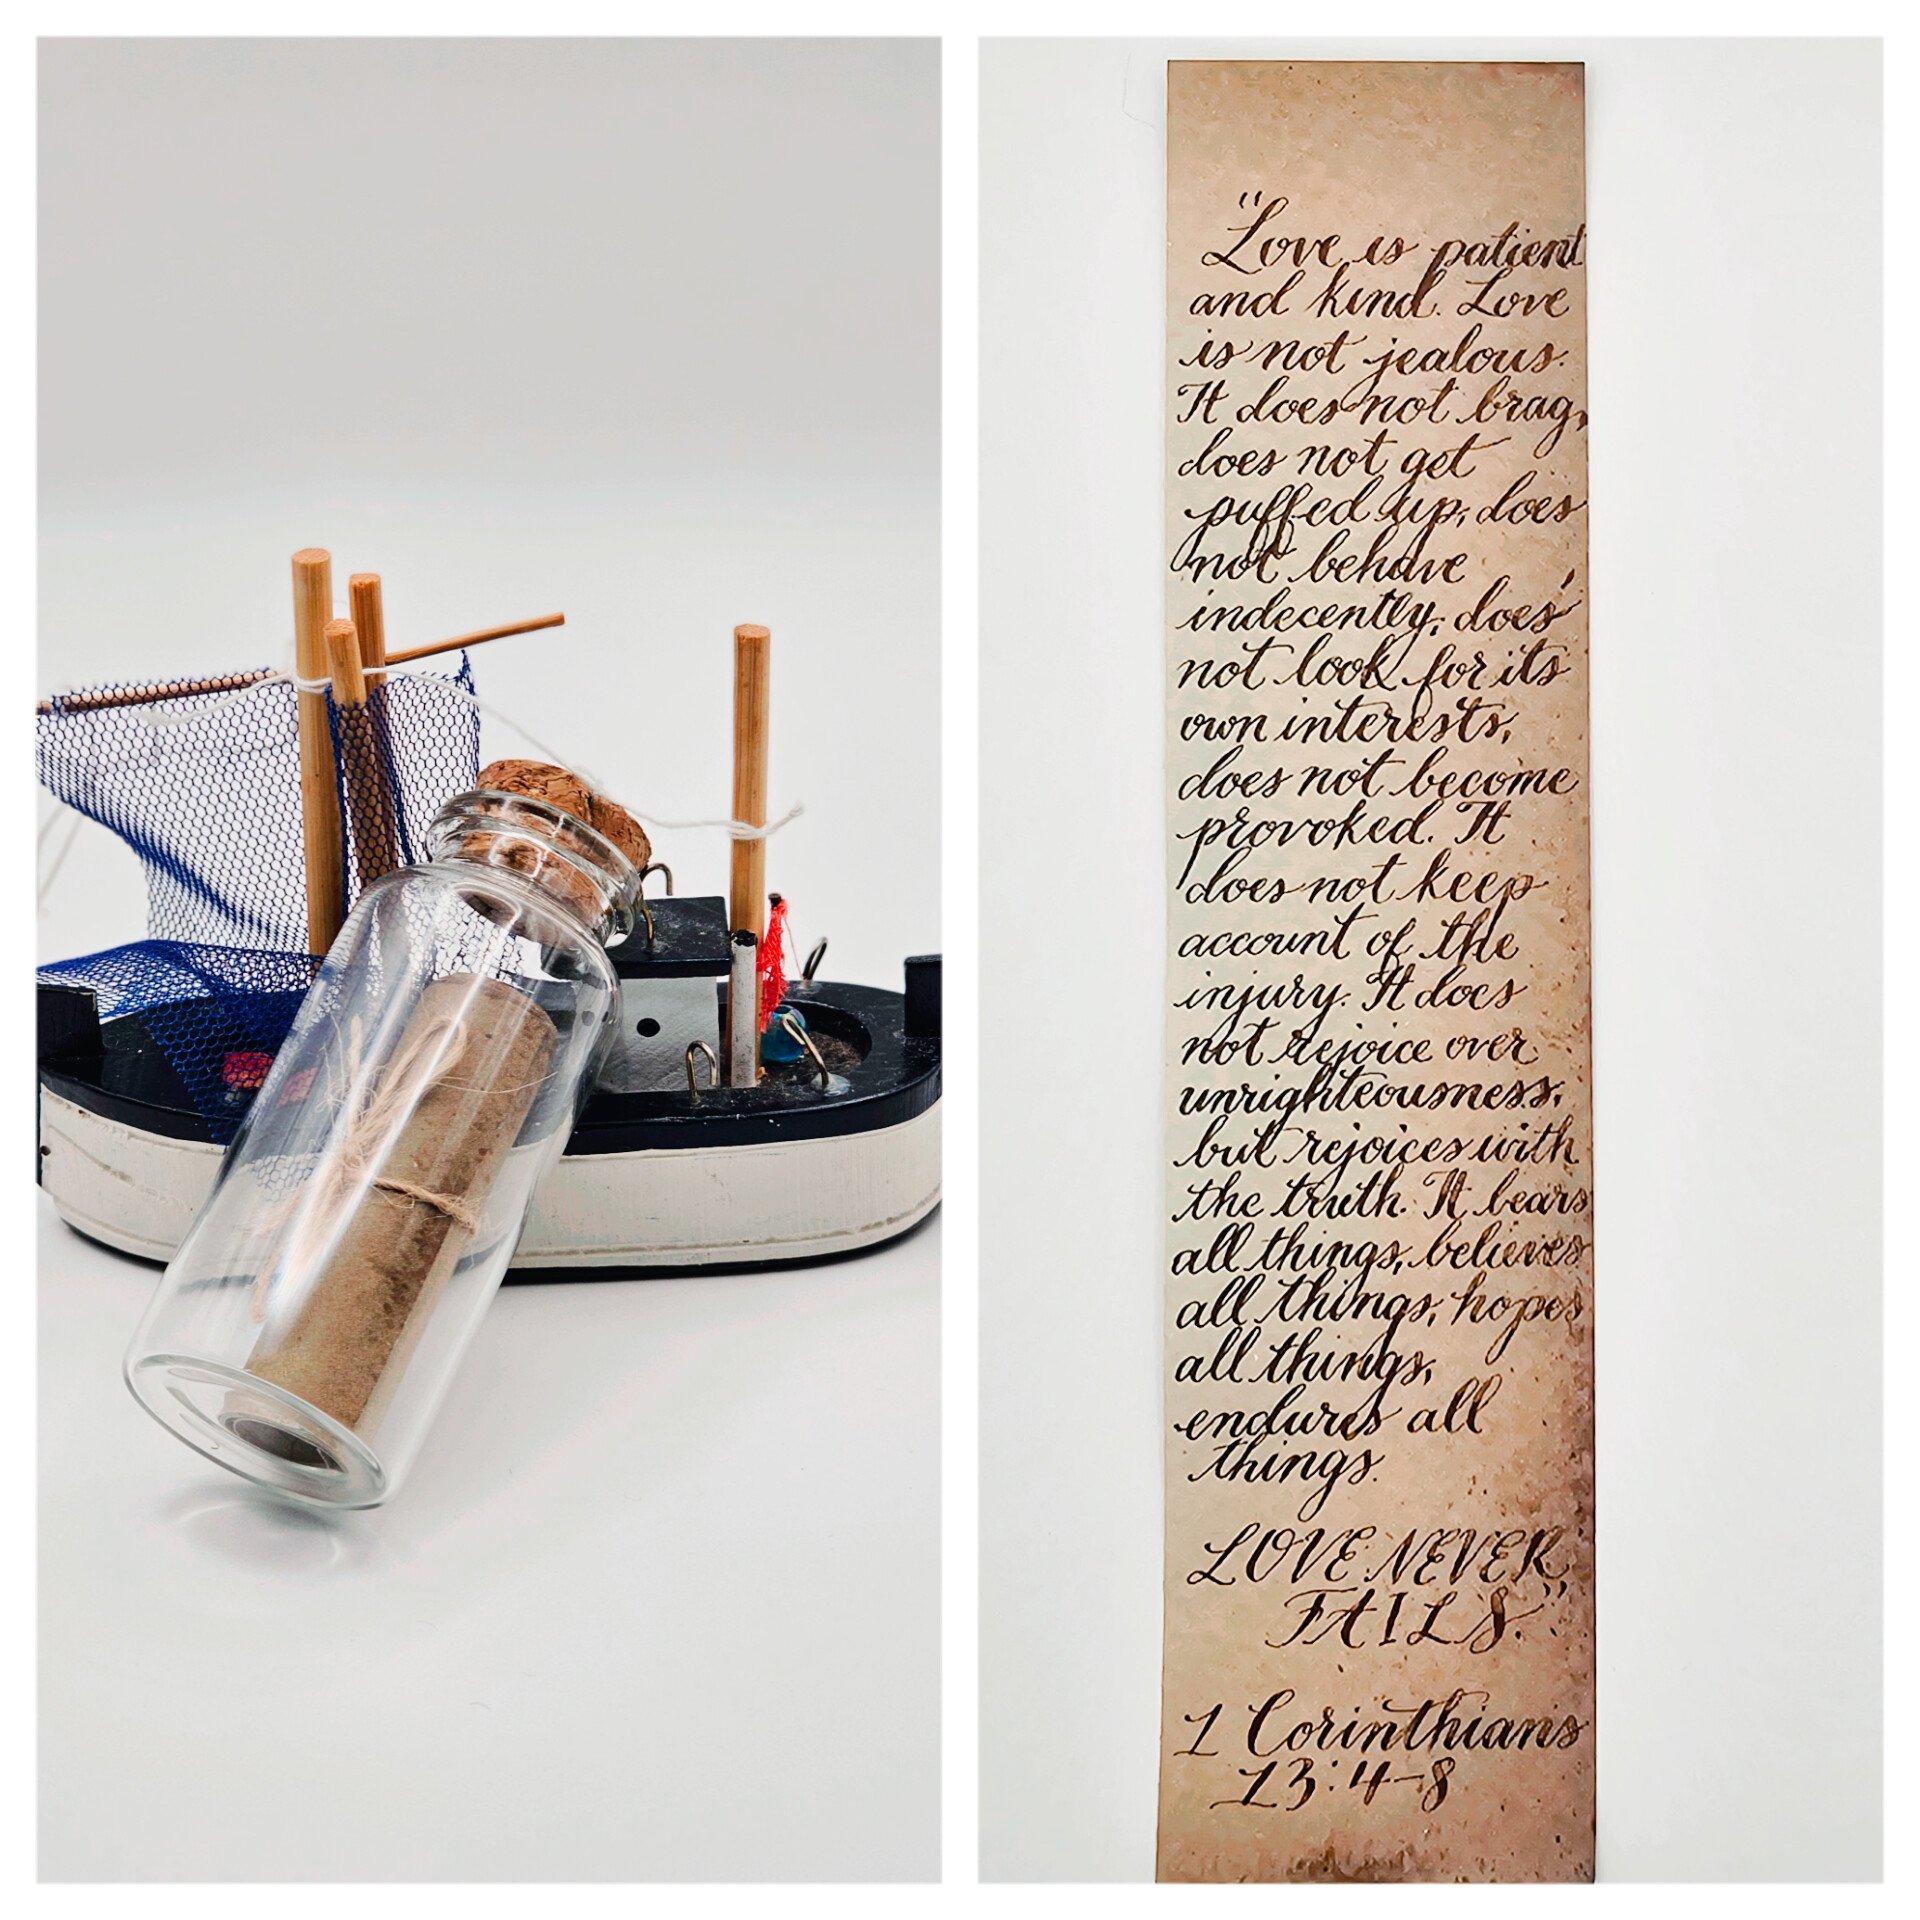 "Love is patient
and kind. Love
is not jealous.
It does not brag,
does not get
puffed up, does
not behave
indecently, does
not look for its
own interests,
does not become
provoked. It
does not keep
account of the
injury. It does
not rejoice over
unrighteousness,
but rejoices with
the truth. It bears
all things, believes
all things, hopes
all things,
endures all
things.
LOVE NEVER
FAILS."
1 Corinthians
13:4-8